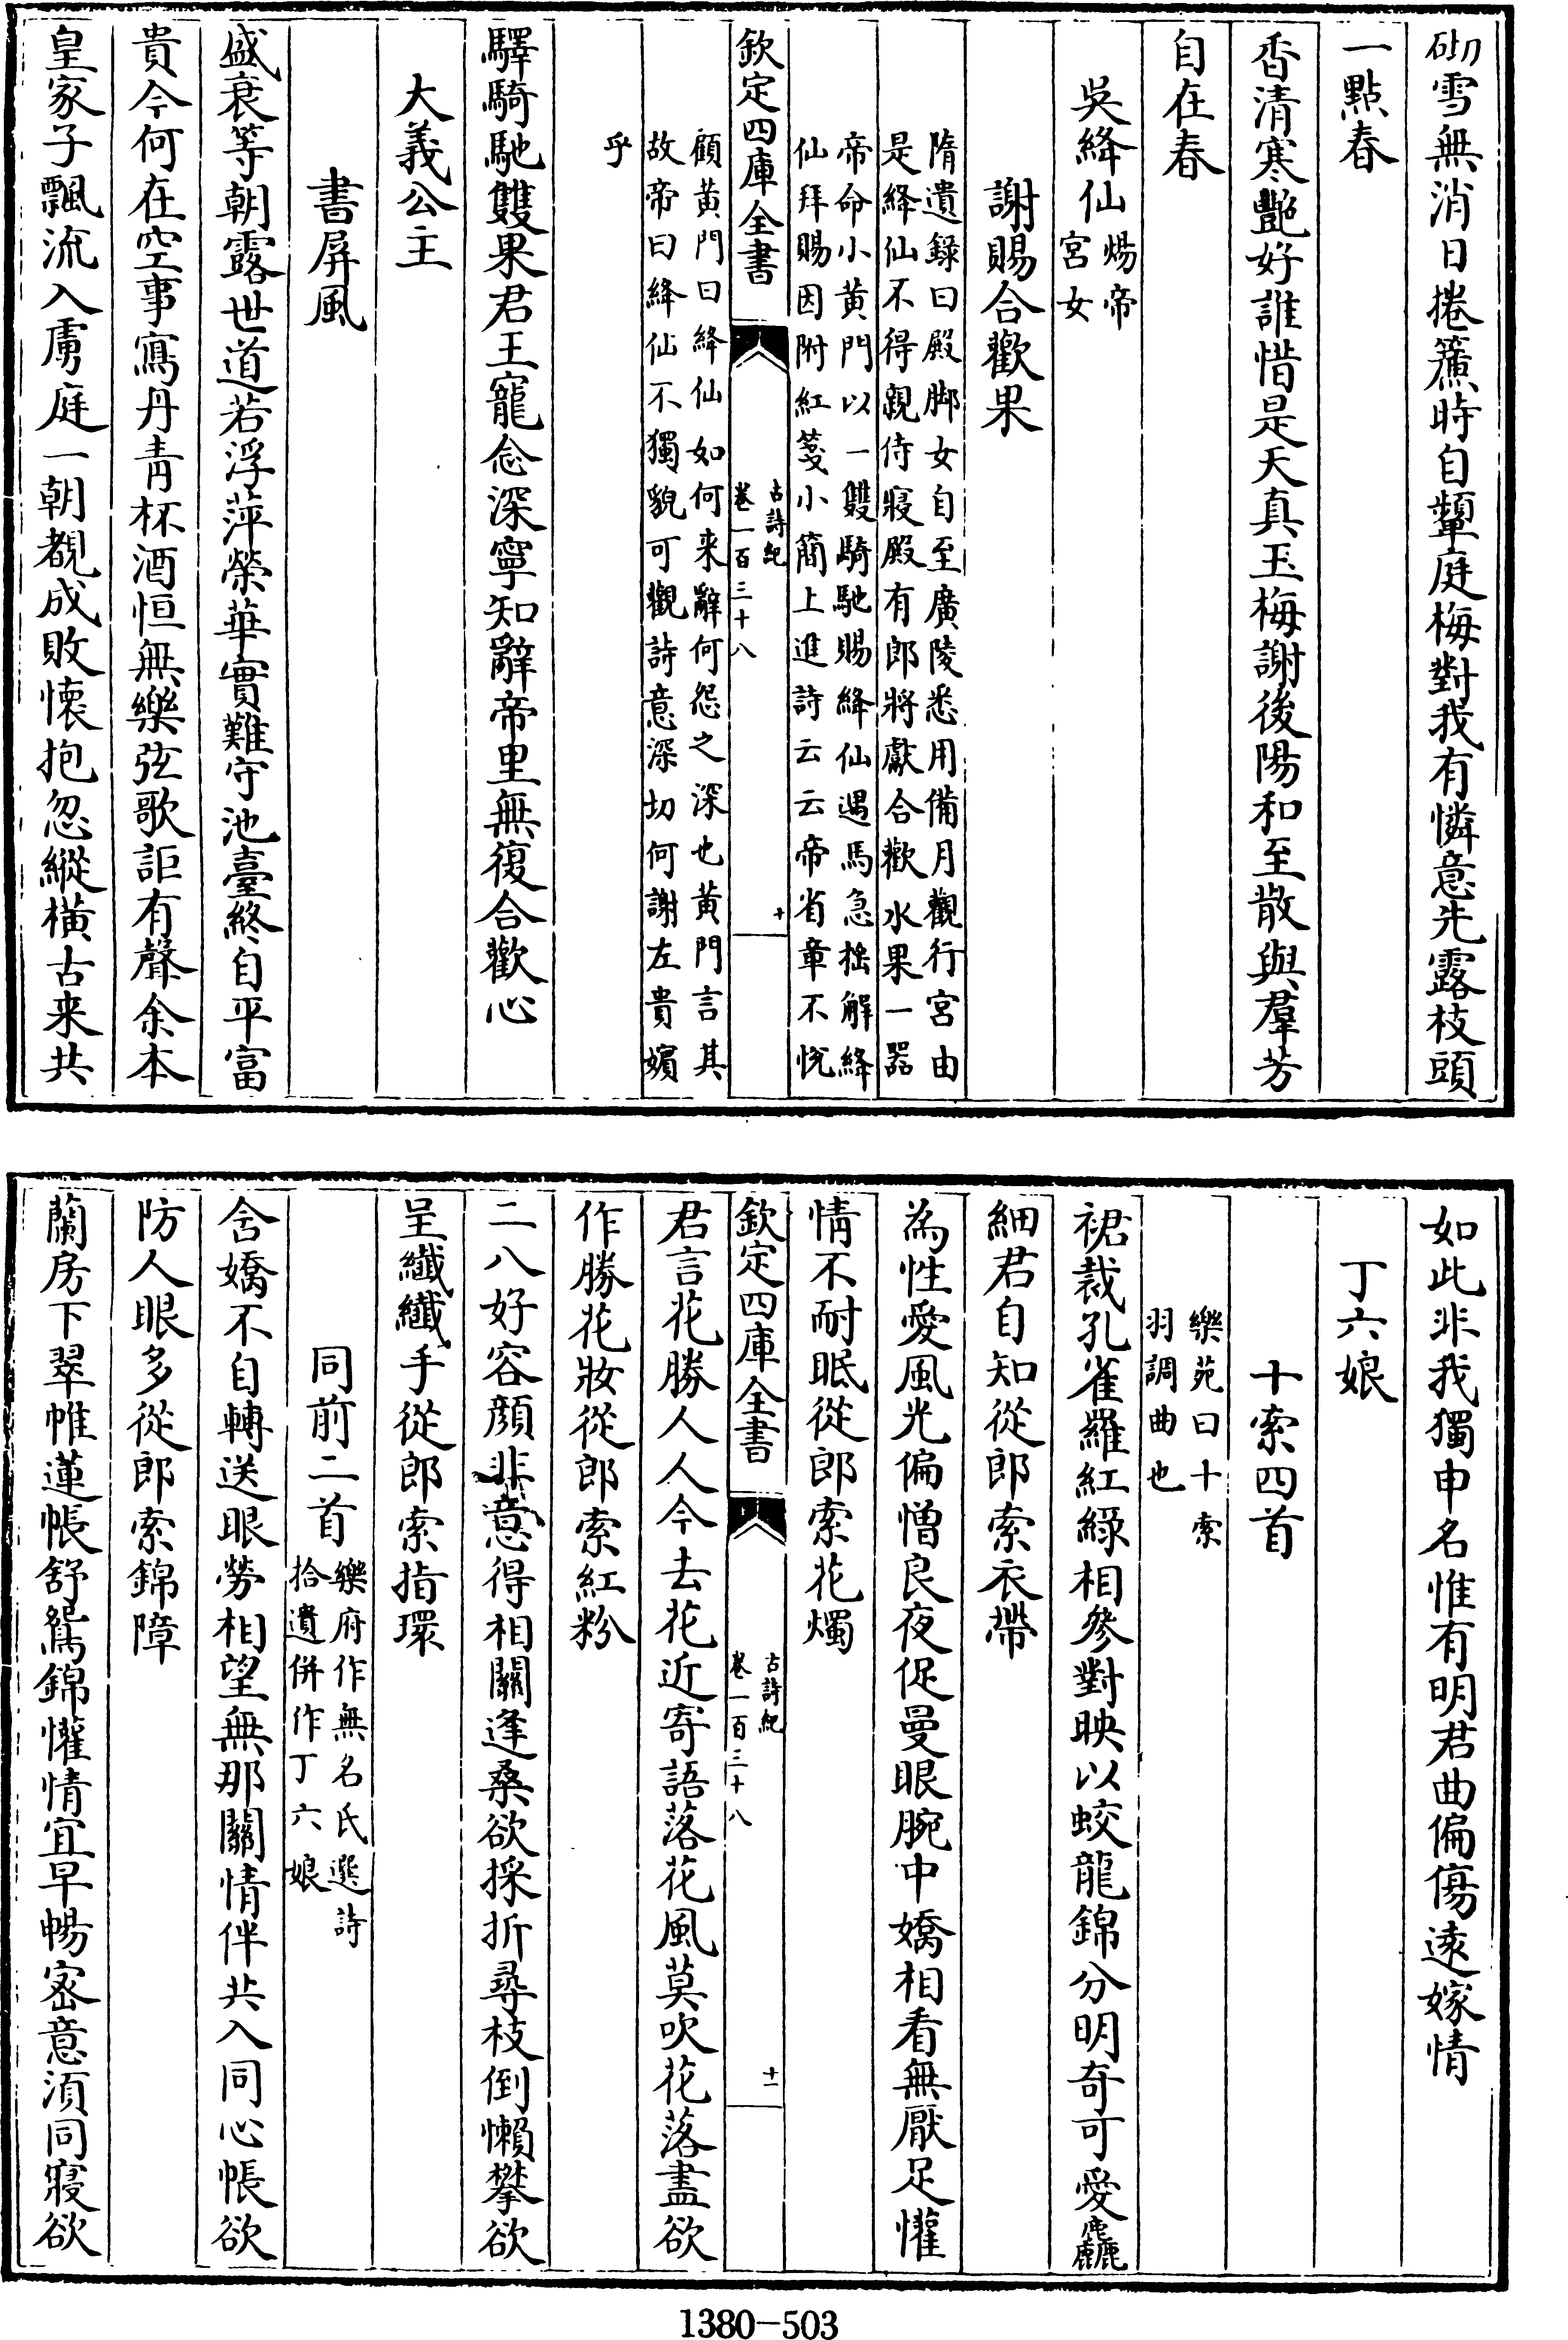 砌雪無消日捲簾時自顰庭梅對我有憐意先露枝頭
一點春
香清寒艷好誰惜是天真玉梅謝後陽和至散與羣芳
自在春
吳絳仙煬帝
宮女
謝賜合歡果
隋遺録曰殿脚女自至廣陵悉用備月觀行宮由
是絳仙不得親侍寢殿有郎將獻合歡水果一器
帝命小黄門以一雙騎馳賜絳仙遇馬急摇解絳
仙拜賜因附紅箋小簡上進詩云云帝省章不悦
欽定四庫全書
古詩紀
卷一百三十八
十
顧黄門曰絳仙如何来辭何怨之深也黄門言其
故帝曰絳仙不獨貌可觀詩意深切何謝左貴嬪
乎
驛騎馳雙果君王寵念深寧知辭帝里無復合歡心
大義公主
書屏風
盛衰等朝露世道若浮萍榮華實難守池臺終自平富
貴今何在空事寫丹青杯酒恒無樂弦歌詎有聲余本
皇家子飄流入虜庭一朝覩成敗懷抱忽縱橫古来共
如此非我獨申名惟有明君曲偏傷逺嫁情
丁六娘
十索四首
樂苑曰十索
羽調曲也
裙裁孔雀羅紅緑相參對映以蛟龍錦分明奇可愛麤
細君自知從郎索衣帶
為性愛風光偏憎良夜促曼眼腕中嬌相看無厭足懽
情不耐眠從郎索花燭
欽定四庫全書
古詩紀
卷一百三十八
十一
君言花勝人人今去花近寄語落花風莫吹花落盡欲
作勝花妝從郎索紅粉
二八好容顔非意得相關逢桑欲採折尋枝倒懶攀欲
呈纖纖手從郎索指環
同前二首樂府作無名氏選詩
拾遺併作丁六娘
含嬌不自轉送眼勞相望無那關情伴共入同心帳欲
防人眼多從郎索錦障
蘭房下翠帷蓮帳舒鴛錦懽情宜早暢宻意須同寢欲
1380-503